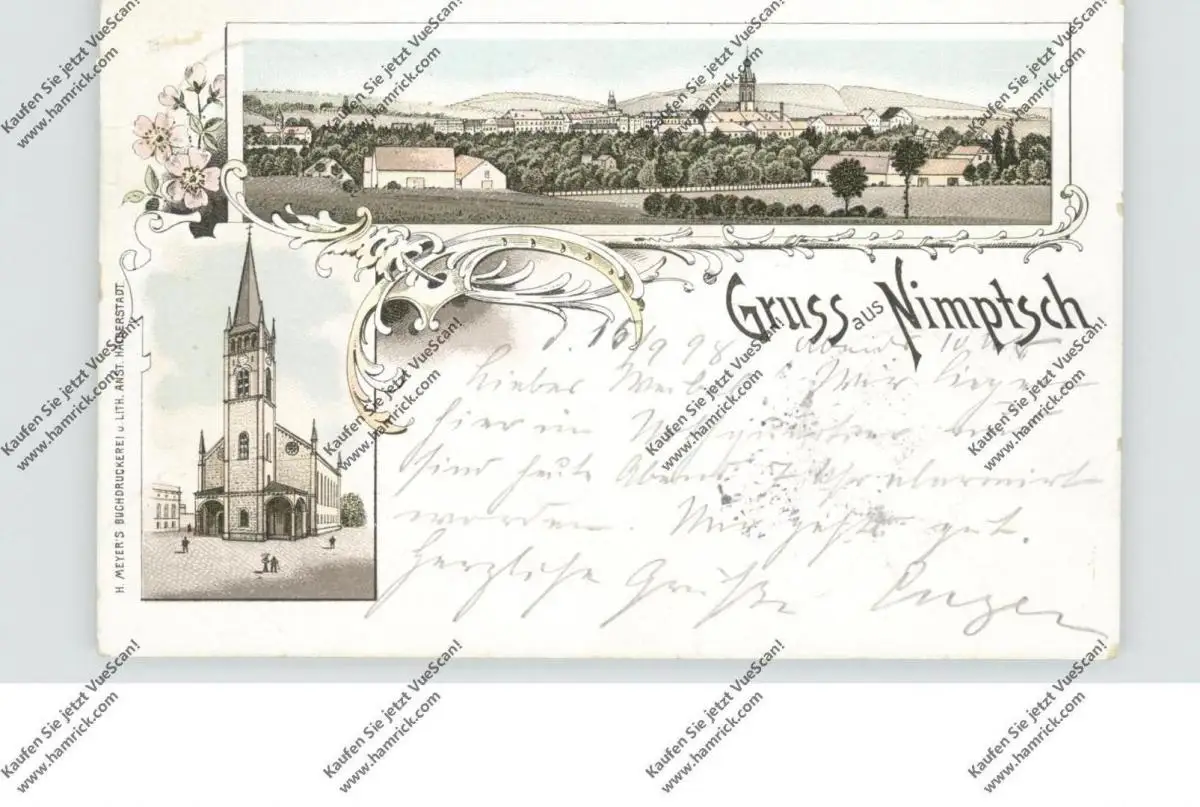 Gruss aus Nimptsch
d. 16/9 98 Abend 10
Liebes Wir liegen
hier im
sind heute Abend 7 Uhr alarmirt
worden. Mir geht's gut.
Herzliche Grüße Eugen
H. MEYER'S BUCHDRUCKEREI U. LITH. ANST. HALBERSTADT.
Kaufen Sie jetzt VueScan!
www.hamrick.com
Kaufen Sie jetzt VueScan!
www.hamrick.com
Kaufen Sie jetzt VueScan!
www.hamrick.com
Kaufen Sie jetzt VueScan!
www.hamrick.com
Kaufen Sie jetzt VueScan!
www.hamrick.com
Kaufen Sie jetzt VueScan!
www.hamrick.com
Kaufen Sie jetzt VueScan!
www.hamrick.com
Kaufen Sie jetzt VueScan!
www.hamrick.com
Kaufen Sie jetzt VueScan!
www.hamrick.com
Kaufen Sie jetzt VueScan!
www.hamrick.com
Kaufen Sie jetzt VueScan!
www.hamrick.com
Kaufen Sie jetzt VueScan!
www.hamrick.com